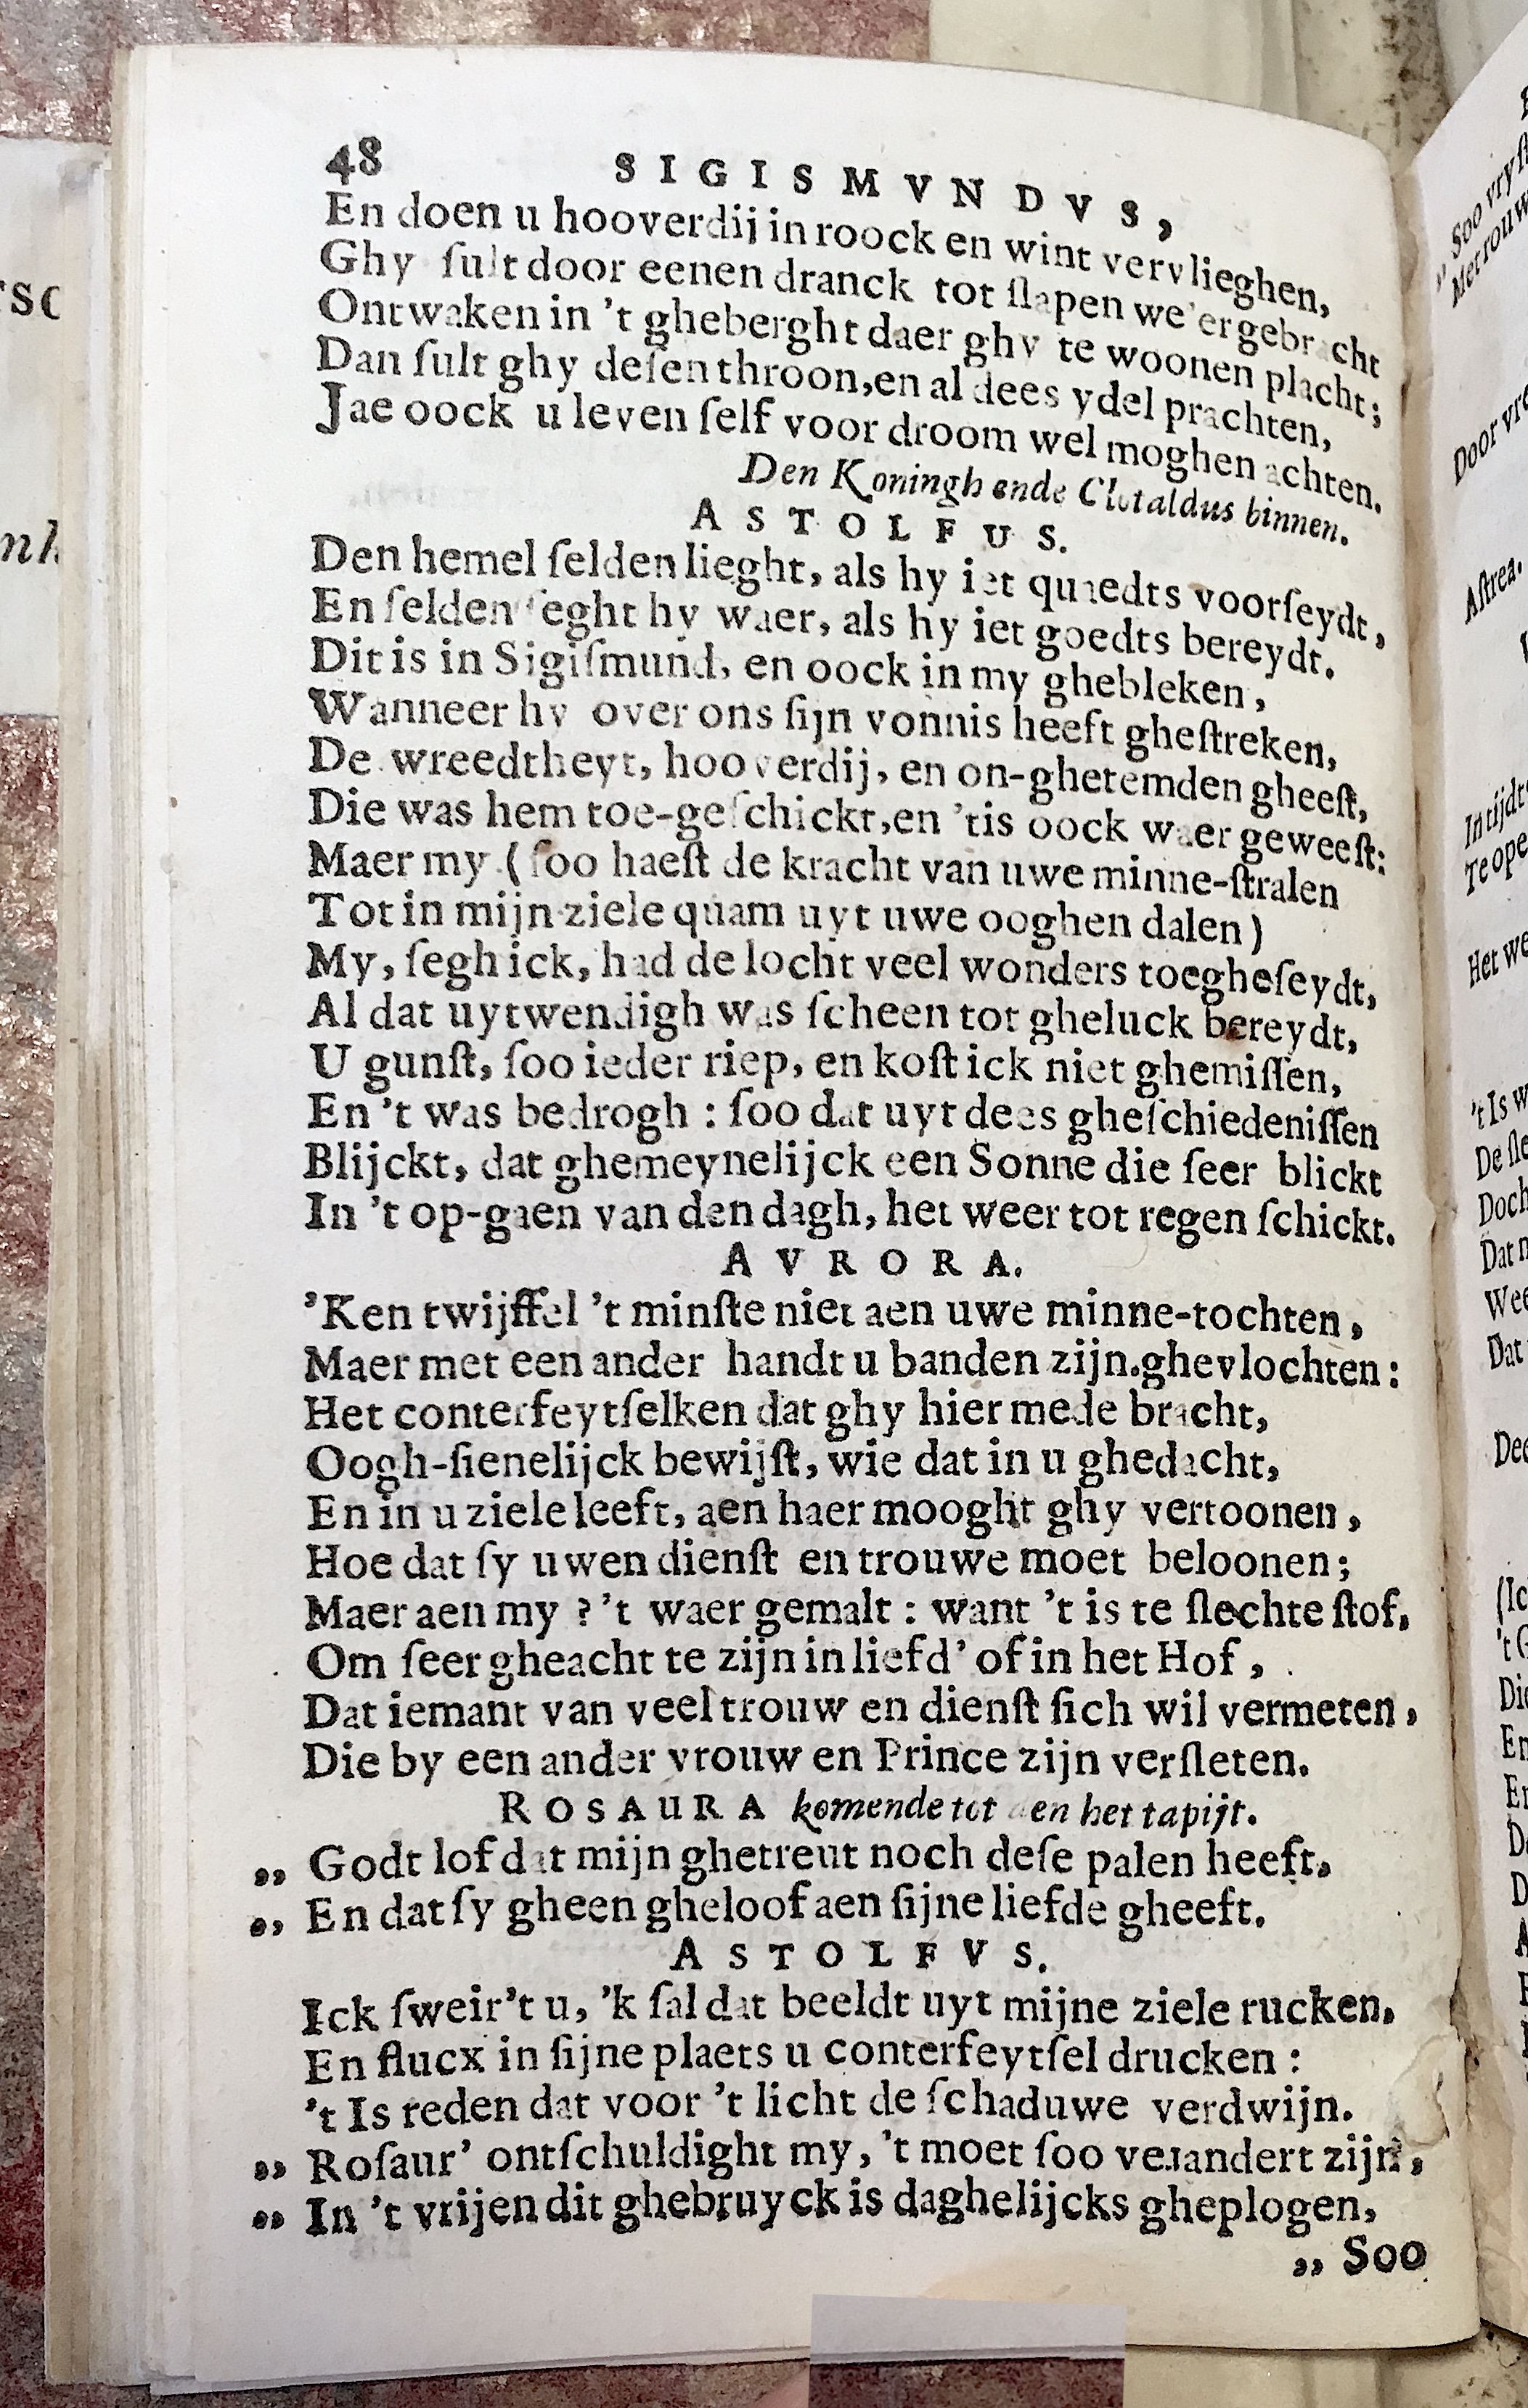 48 SIGISMVNDVS,
En doen u hooverdij in roock en wint vervlieghen,
Ghy ſult door eenen dranck tot ſlapen we'er gebracht
Ontwaken in 't gheberght daer ghy te woonen placht;
Dan ſult ghy deſen throon, en al dees ydel prachten,
Jae oock u leven ſelf voor droom wel moghen achten.
Den Koningh ende Clotaldus binnen.
ASTOLFUS.
Den hemel ſelden lieght, als hy iet quaedts voorſeydt,
En ſelden ſeght hy waer, als hy iet goedts bereydt.
Dit is in Sigiſmund, en oock in my ghebleken,
Wanneer hy over ons ſijn vonnis heeft gheſtreken,
De wreedtheyt, hooverdij, en on-ghetemden gheeſt,
Die was hem toe-geſchickt, en 'tis oock waer geweeſt:
Maer my (ſoo haeſt de kracht van uwe minne-ſtralen
Tot in mijn ziele quam uyt uwe ooghen dalen)
My, ſegh ick, had de locht veel wonders toegheſeydt,
Al dat uytwendigh was ſcheen tot gheluck bereydt,
U gunſt, ſoo ieder riep, en koſt ick niet ghemiſſen,
En 't was bedrogh : ſoo dat uyt dees gheſchiedeniſſen
Blijckt, dat ghemeynelijck een Sonne die ſeer blickt
In 't op-gaen van den dagh, het weer tot regen ſchickt.
AVRORA.
'Ken twijffel 't minſte niet aen uwe minne-tochten,
Maer met een ander handt u banden zijn.ghevlochten:
Het conterfeytſelken dat ghy hier mede bracht,
Oogh-ſienelijck bewijſt, wie dat in u ghedacht,
En in u ziele leeft, aen haer mooght ghy vertoonen,
Hoe dat ſy uwen dienſt en trouwe moet beloonen;
Maer aen my ? 't waer gemalt : want 't is te ſlechte ſtof,
Om ſeer gheacht te zijn in liefd' of in het Hof,
Dat iemant van veel trouw en dienſt ſich wil vermeten,
Die by een ander vrouw en Prince zijn verſleten.
ROSAURA komende tot aen het tapijt.
„ Godt lof dat mijn ghetreut noch deſe palen heeft,
„ En dat ſy gheen gheloof aen ſijne liefde gheeft.
ASTOLFVS.
Ick ſweir't u, 'k ſal dat beeldt uyt mijne ziele rucken,
En flucx in ſijne plaets u conterfeytſel drucken :
't Is reden dat voor 't licht de ſchaduwe verdwijn.
„ Roſaur' ontſchuldight my, 't moet ſoo verandert zijn,
„ In 't vrijen dit ghebruyck is daghelijcks gheplogen,
„ Soo